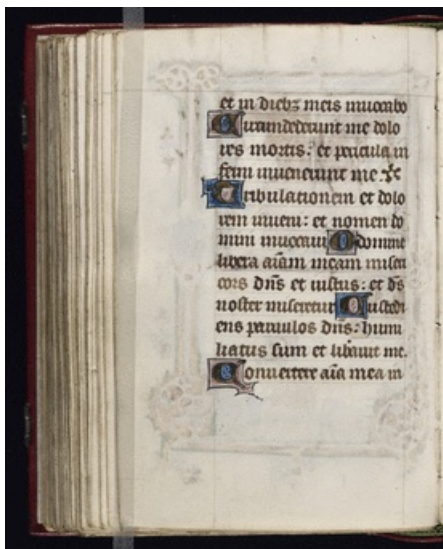 et in diebz meis inuocabo
Circundederunt me dolo
res mortis: et pericula in
ferni inuenerunt me
Tribulationem et dolo
rem inueni: et nomen do
mini inuocaui O domine
libera aiam meam miseri
cors dns et iustus: et ds
noster miseretur Custodi
ens paruulos dns: humi
liatus sum et libauit me.
Conuertere aia mea in